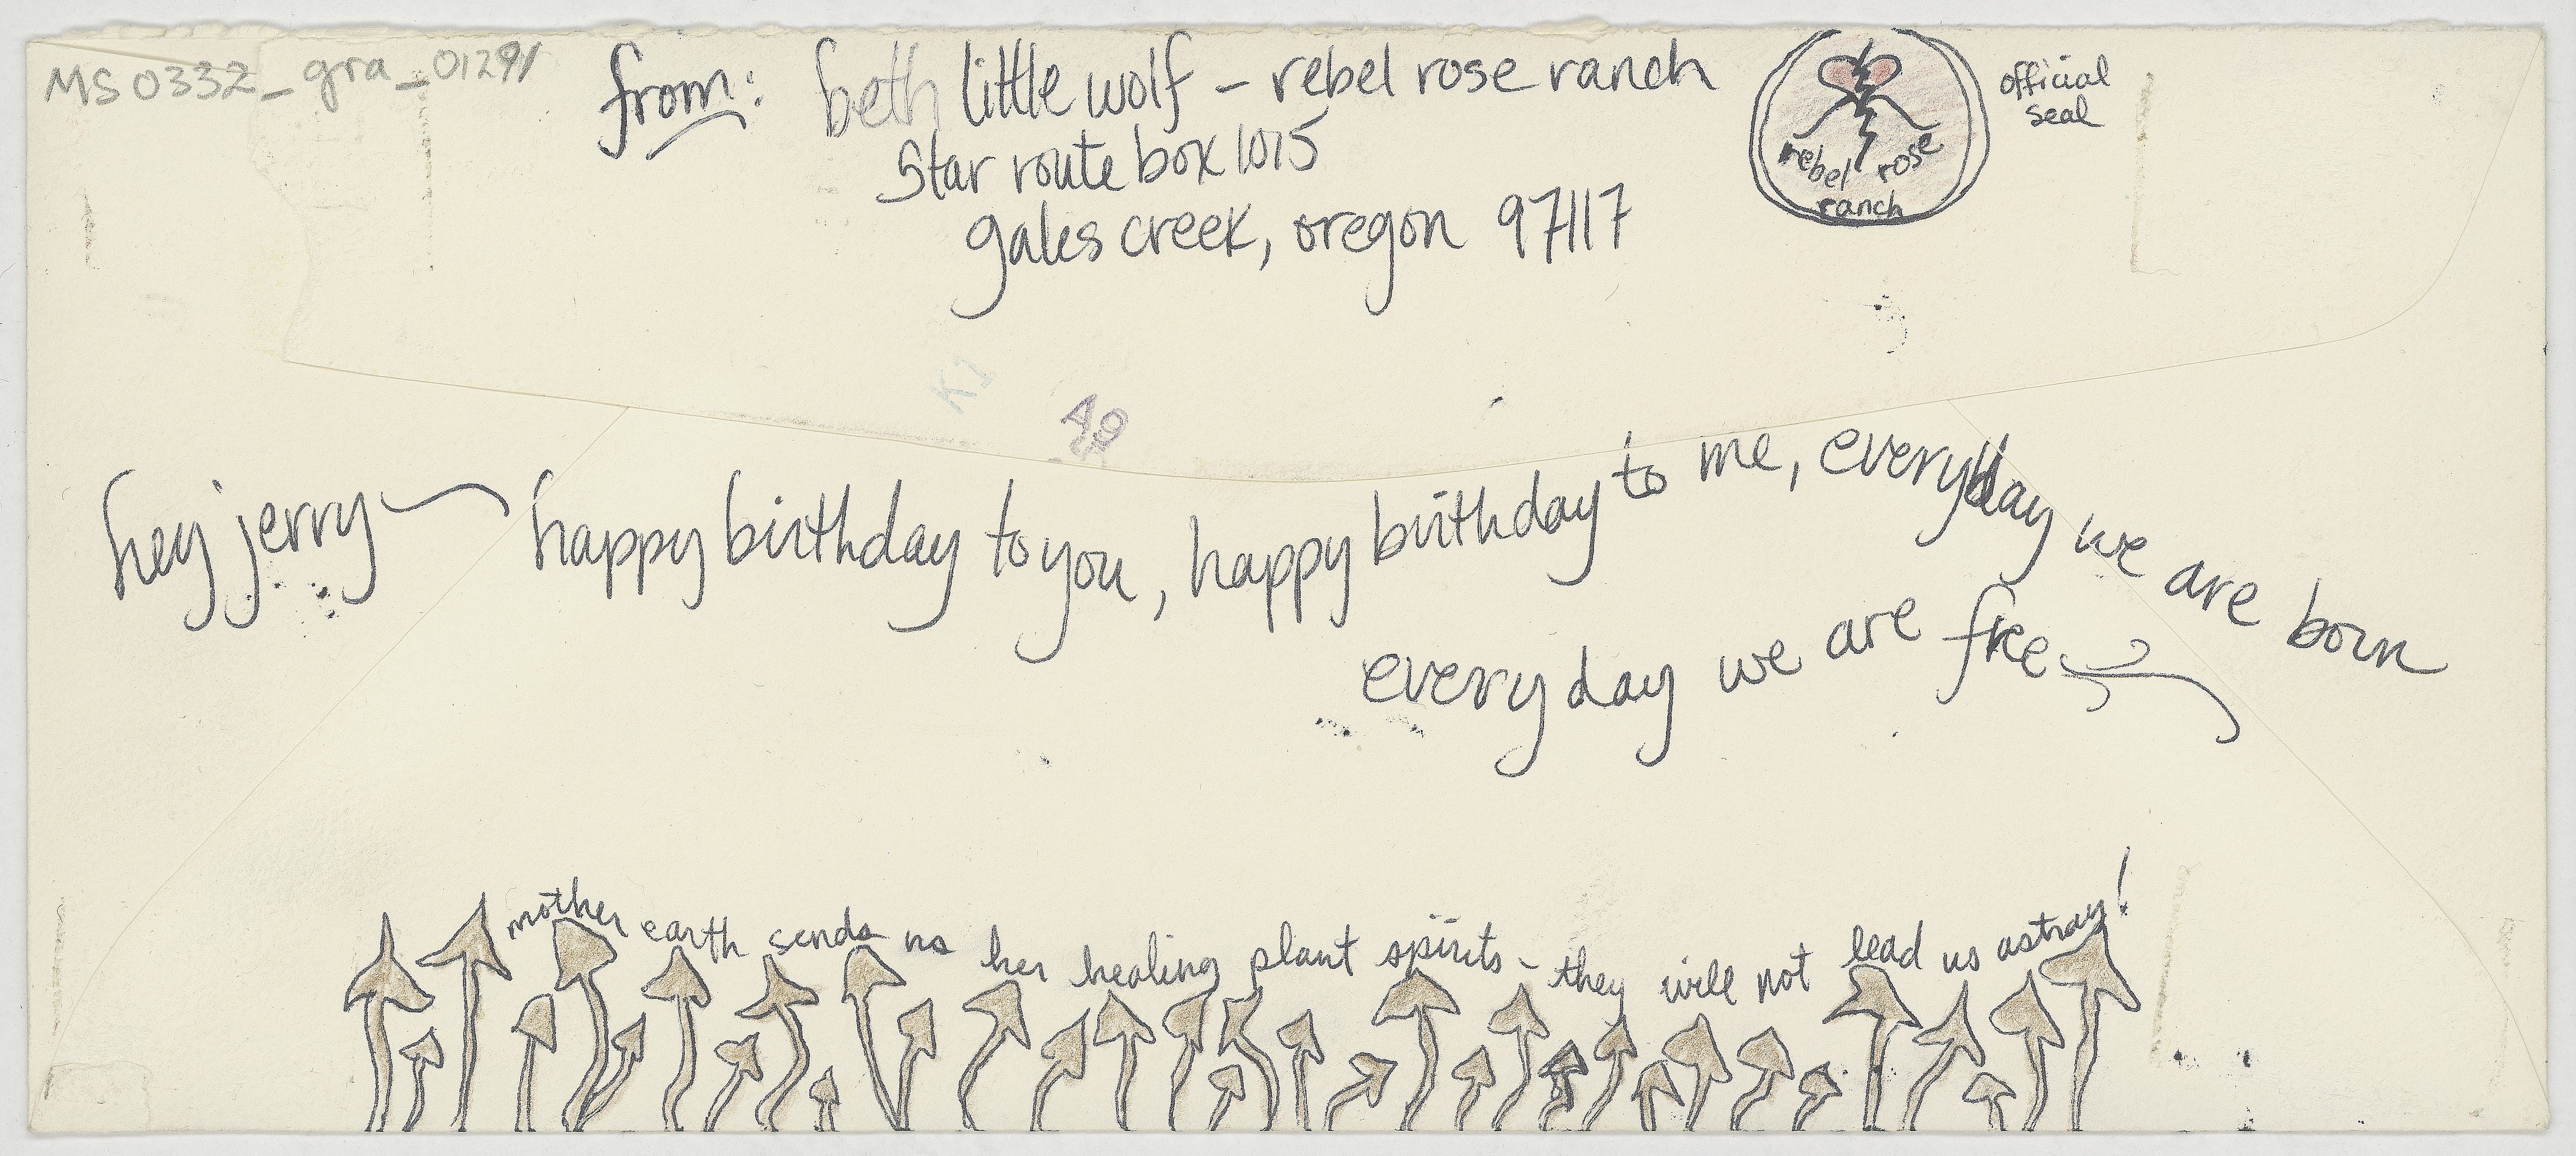 MS 0332_gra_01291
from: beth little wolf - rebel rose ranch
star route box 1015
gales creek, oregon 97117
rebel rose
ranch
official
seal
K1
A9
hey jerry happy birthday to you, happy birthday to me, everyday we are born
every day we are free
mother earth sends us her healing plant spirits - they will not lead us astray!